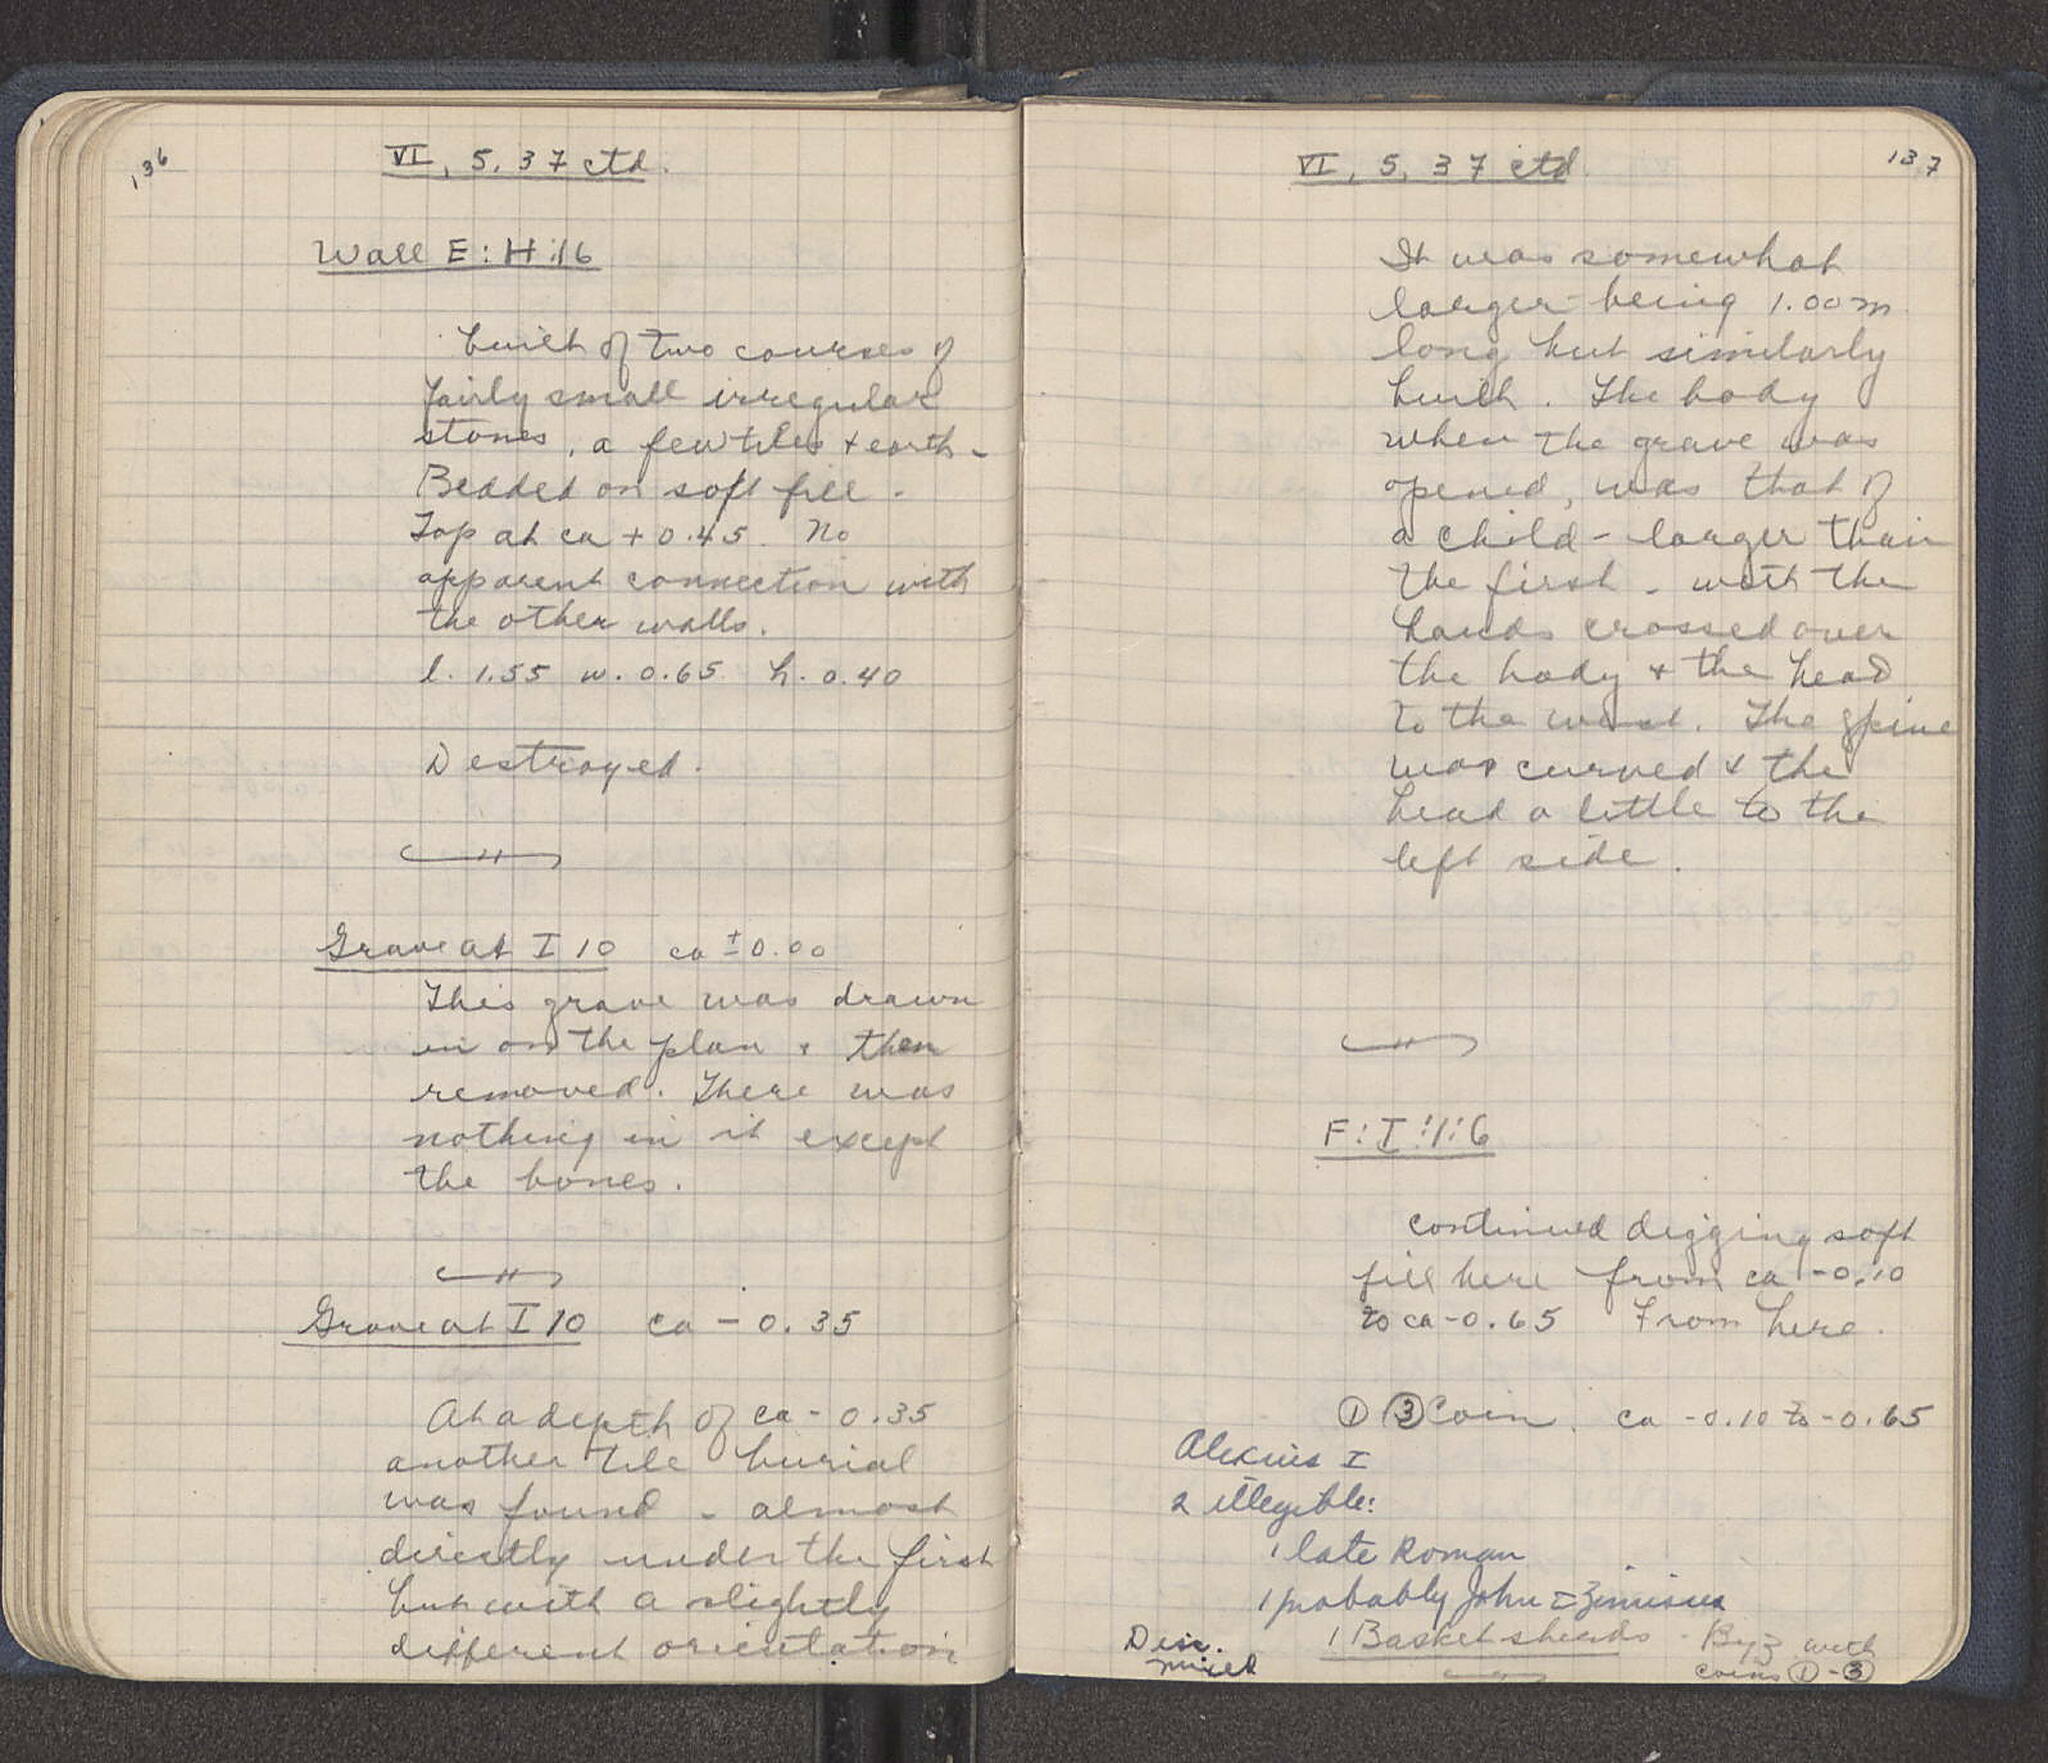 136
VI, 5, 37 ctd.
Wall E:H:16
built of two courses of
fairly small irregular
stones, a few tiles + earth -
Bedded on soft fill -
Top at ca + 0.45. No
apparent connection with
the other walls.
l. 1.55 w. 0.65 h. 0.40
Destroyed.
Grave at I 10 ca ± 0.00
This grave was drawn
in on the plan + then
removed. There was
nothing in it except
the bones.
Grave at I 10 ca - 0.35
At a depth of ca - 0.35
another tile burial
was found - almost
directly under the first
but with a slightly
different orientation
137
VI, 5, 37 ctd.
It was somewhat
larger - being 1.00 m
long but similarly
built. The body
when the grave was
opened, was that of
a child - larger than
the first - with the
hands crossed over
the body + the head
to the west. The spine
was curved + the
head a little to the
left side.
F:I:16
continued digging soft
fill here from ca -0.10
to ca -0.65 From here.
① ③ Coin. ca -0.10 to -0.65
Alexius I
2 illegible:
1 late Roman
1 probably John I Zimisces
1 Basket sherds - Byz with
coins ① - ③
Disc.
mixed